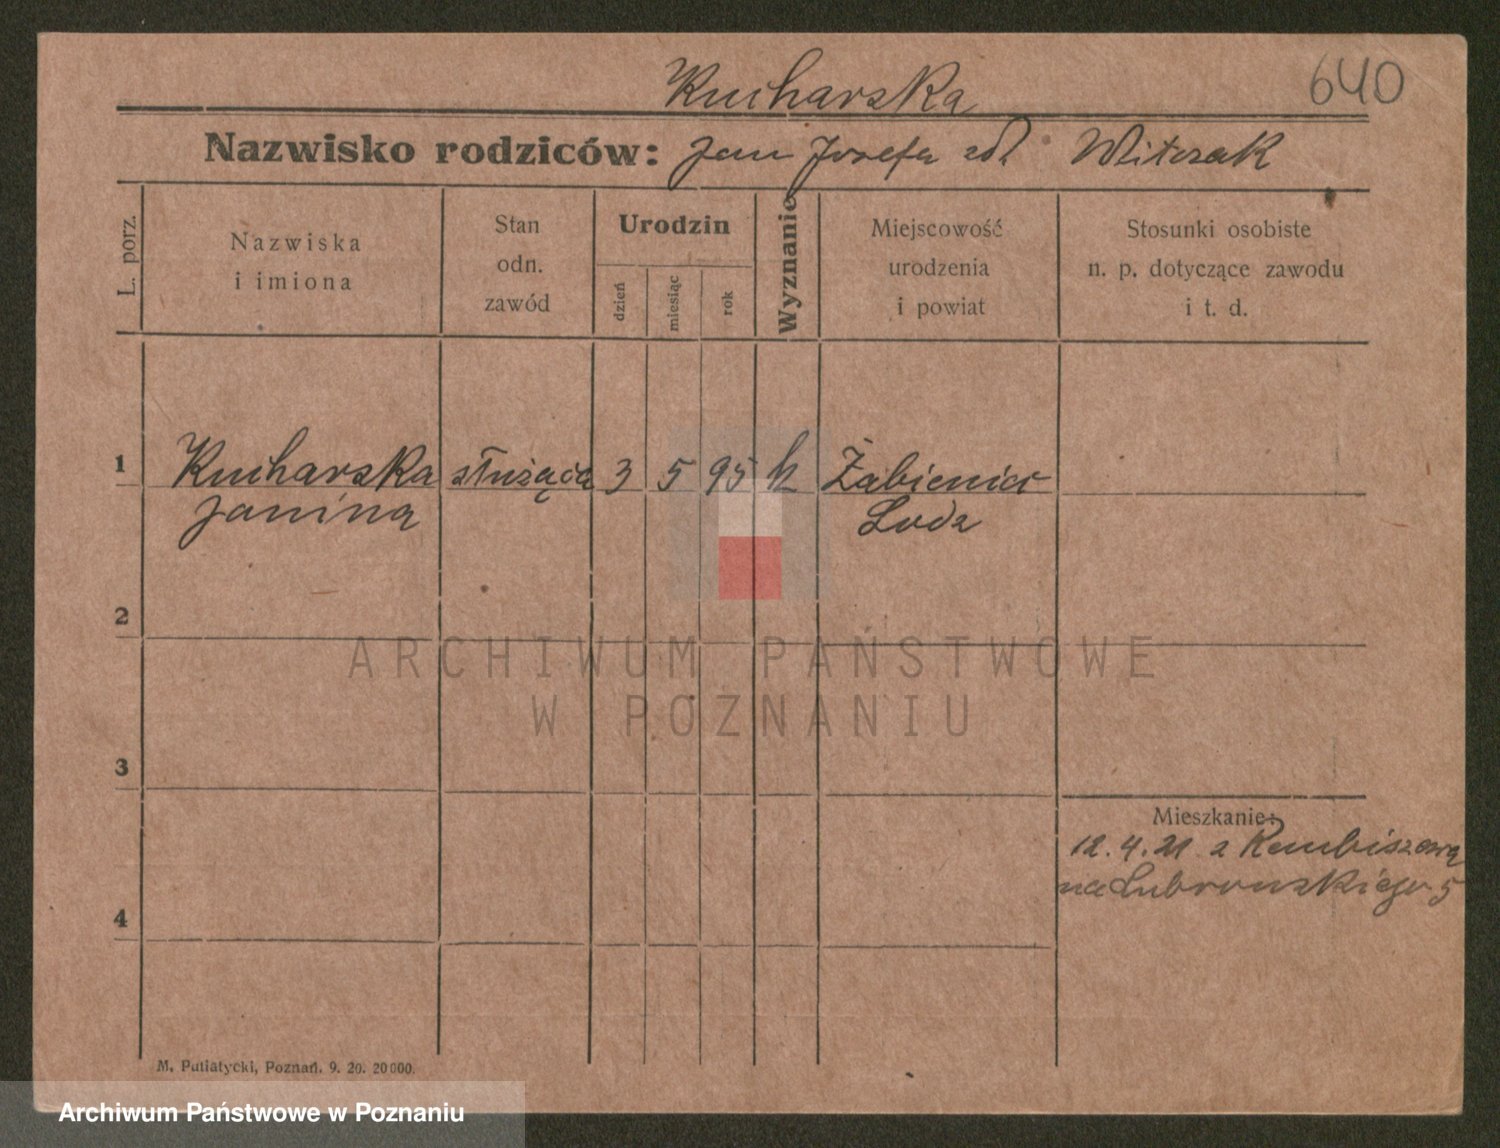 640
Kucharska
Nazwisko rodziców: Jan Józefa zd Witczak
L. porz.
Nazwiska
i imiona
Stan
odn.
zawód
Urodzin
dzień
miesiąc
rok
Wyznanie
Miejscowość
urodzenia
i powiat
Stosunki osobiste
n. p. dotyczące zawodu
i t. d.
1 Kucharska służąca 3 5 95 k Żabieniec
Janina Lodz
2
3
4
Mieszkanie:
12.4.21 z
na 5
M. Putiatycki, Poznań. 9. 20. 20000.
ARCHIWUM PAŃSTWOWE
W POZNANIU
Archiwum Państwowe w Poznaniu